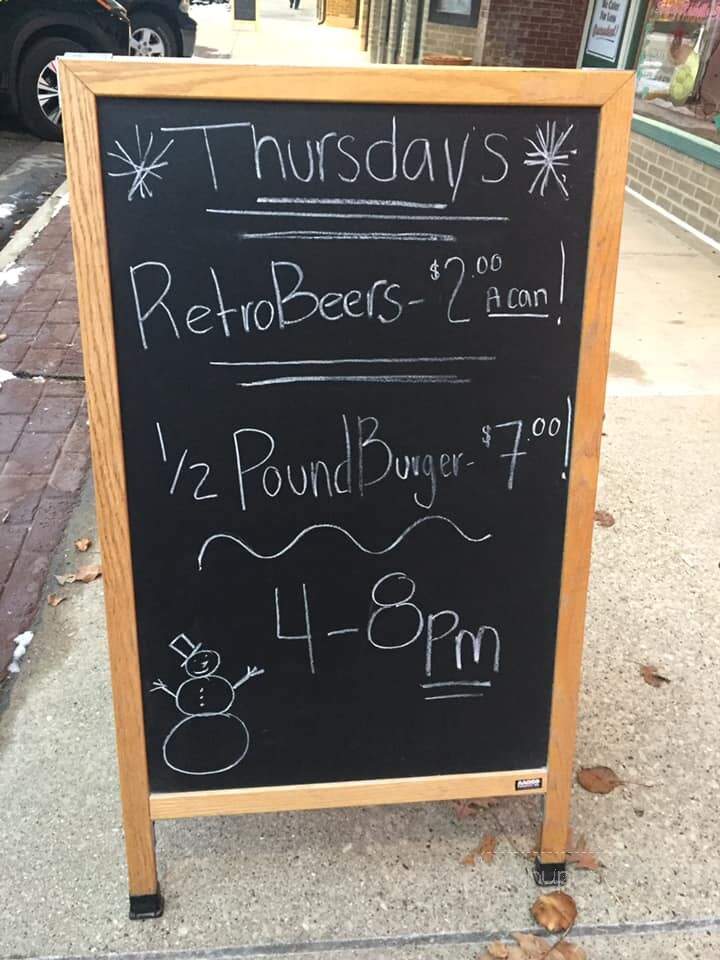 Thursday's
Retro Beers - $2.00 A can!
1/2 Pound Burger - $7.00!
4-8pm